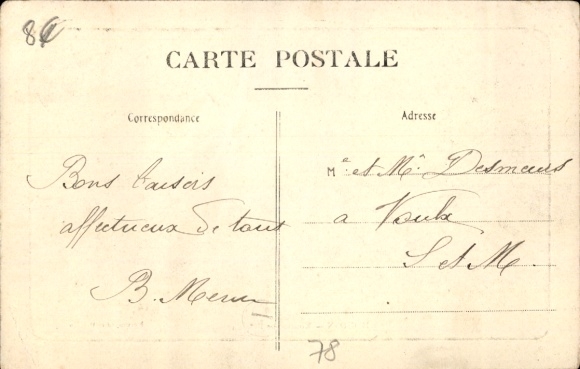 CARTE POSTALE
Correspondance
Adresse
Bons baisers
affectueux de tous
B.
Me et Mr Desmeurs
a Voulx
S et M.
78